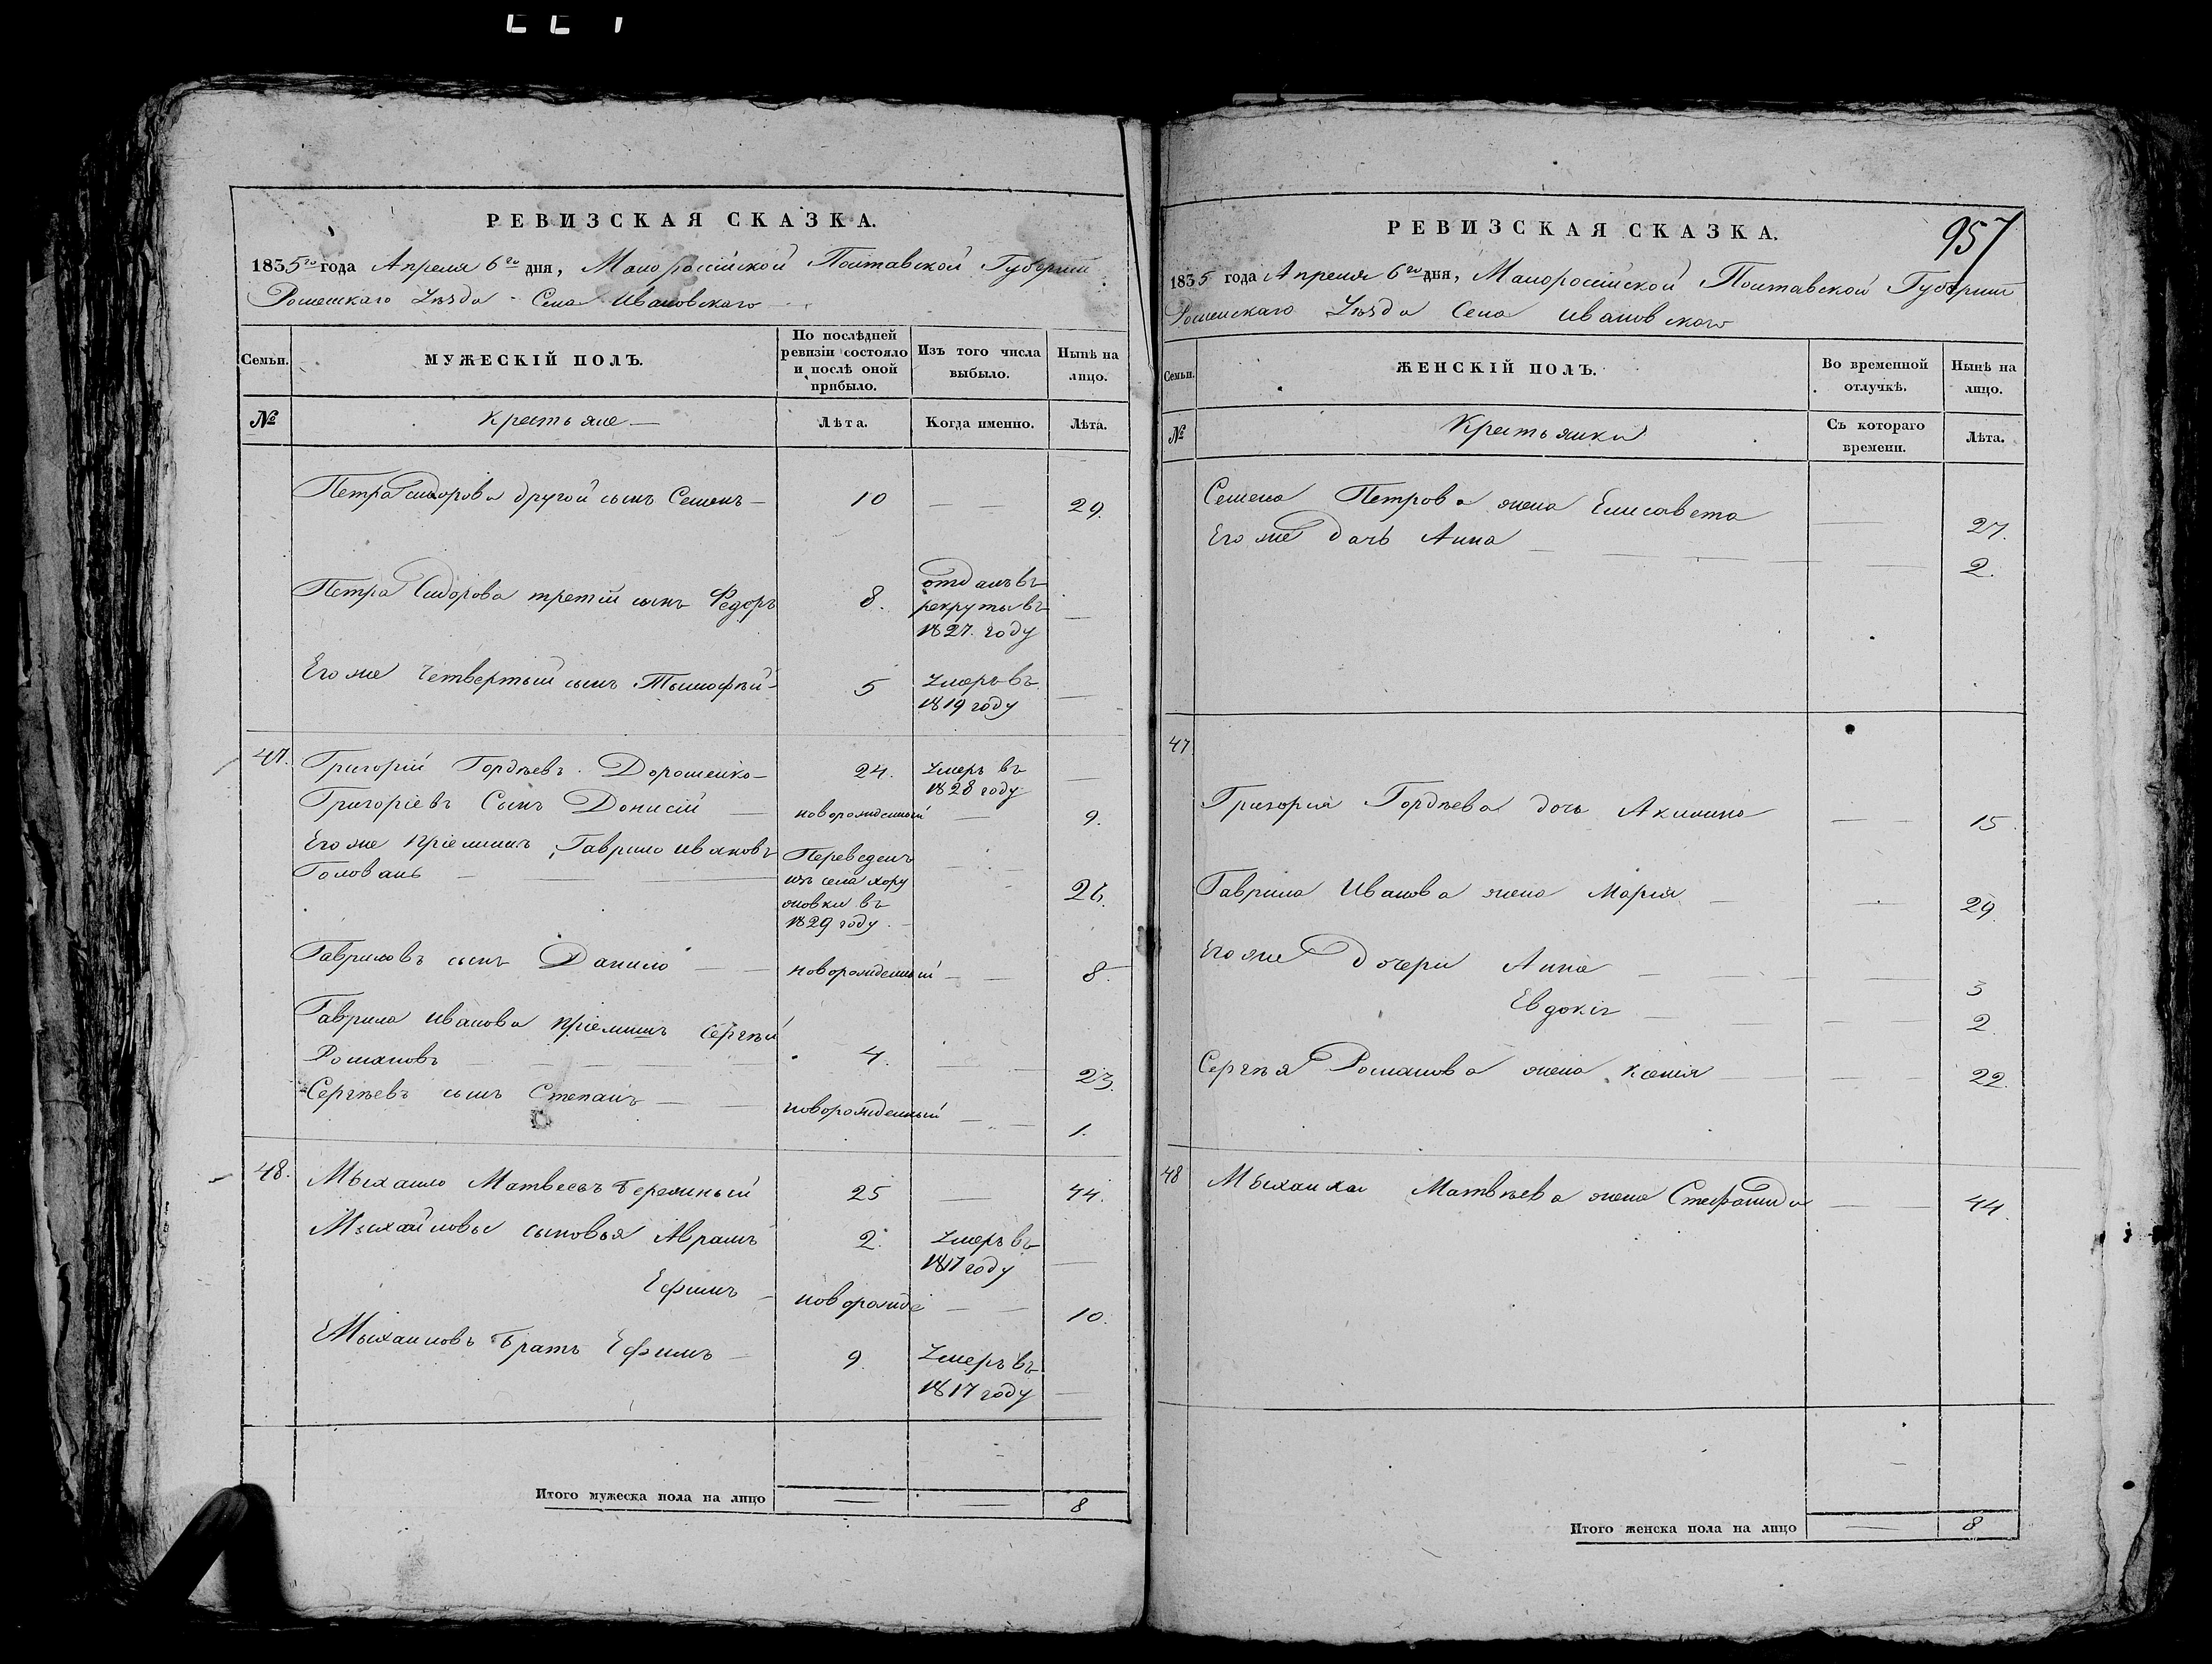 РЕВИЗСКАЯ СКАЗКА.
1835го года Апреля 6го дня, Малороссійской Полтавской Губерніи
Роменскаго Уѣзда Села Ивановскаго
Семьи.
МУЖЕСКІЙ ПОЛЪ.
По послѣдней ревизіи состояло и послѣ оной прибыло.
Изъ того числа выбыло.
Нынѣ на лицо.
№
Крестьяне
Лѣта.
Когда именно.
Лѣта.
Петра Сидорова другой сынъ Семенъ 10 29.
Петра Сидорова третій сынъ Федоръ 8. отданъ въ
рекруты въ
1827. году
Его же четвертый сынъ Тымофѣй 5 Умеръ въ
1819 году
47. Григорій Гордѣевъ Дорошенко 24. Умеръ въ
1828 году
Григоріевъ Сынъ Донисій новорожденный 9.
Его же пріемышъ Гаврило Ивановъ Переведенъ
Голованъ изъ села хору
жовки въ
1829 году
Гавриловъ сынъ Данило новорожденный 8.
Гаврила Иванова пріемышъ Сергѣй
Романовъ 4. 23.
Сергѣевъ сынъ Степанъ новорожденный 1.
48. Мыхаило Матвеевъ Бережный 25 44.
Мыхайловы сыновья Аврамъ 2. Умеръ въ
1817 году
Ефимъ новорожде 10.
Мыхаиловъ братъ Ефимъ 9. Умеръ въ
1817 году
Итого мужеска пола на лицо 8
РЕВИЗСКАЯ СКАЗКА.
957
1835 года Апреля 6го дня, Малоросійской Полтавской Губерніи
Роменскаго Уѣзда Села Ивановскаго
Семьи.
ЖЕНСКІЙ ПОЛЪ.
Во временной отлучкѣ.
Нынѣ на лицо.
№
Крестьянки
Съ котораго времени.
Лѣта.
Семена Петрова жена Елисавета 27.
Его же дочь Анна 2.
47
Григорія Гордѣева дочь Акилина 15
Гаврила Иванова жена Марія 29.
Его же дочери Анна 3
Евдокія 2
Сергѣя Романова жена Ксенія 22.
48 Мыхаила Матвѣева жена Стефанида 44.
Итого женска пола на лицо 8